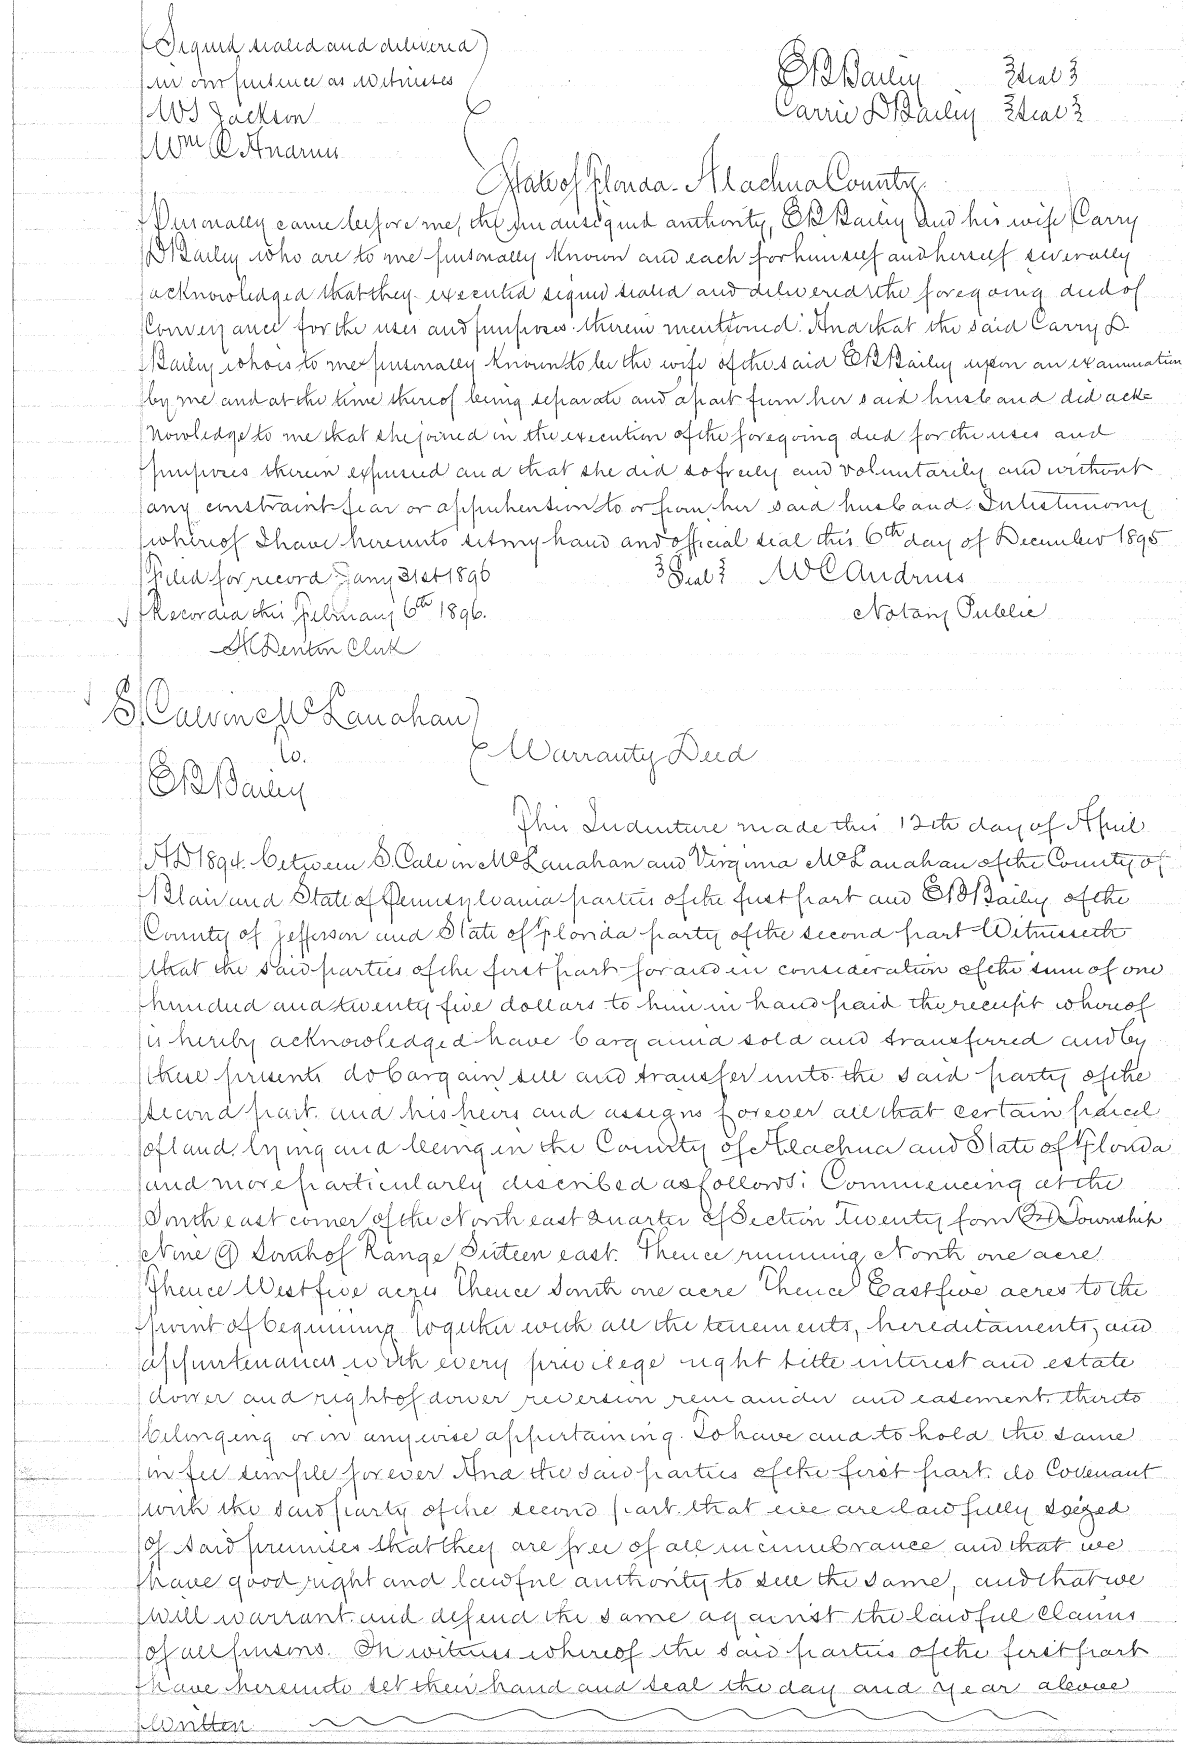 Signed sealed and delivered
in our presence as witnesses
WS Jackson
Wm C Andruss
EB Bailey Seal
Carrie D Bailey Seal
State of Florida - Alachua County.
Personally came before me, the undersigned authority, EB Bailey and his wife Carry
D Bailey who are to me personally known and each for himself and herself severally
acknowledged that they executed signed sealed and delivered the foregoing deed of
Conveyance for the uses and purposes therein mentioned. And that the said Carry D
Bailey who is to me personally known to be the wife of the said EB Bailey upon an examination
by me and at the time thereof being separate and apart from her said husband did ack=
nowledge to me that she joined in the execution of the foregoing deed for the uses and
purposes therein expressed and that she did so freely and voluntarily and without
any constraint fear or apprehension to or from her said husband. In testimony
whereof I have hereunto set my hand and official seal this 6th day of December 1895
Filed for record Jany 31st 1896 Seal WC Andruss
Recorded this February 6th 1896. Notary Public
Denton Clerk
S. Calvin McLanahan
to.
EB Bailey
Warranty Deed
This Indenture made this 12th day of April
AD 1894. between S. Calvin McLanahan and Virginia McLanahan of the County of
Blair and State of Pennsylvania parties of the first part and EB Bailey of the
County of Jefferson and State of Florida party of the second part Witnesseth
that the said parties of the first part for and in consideration of the sum of one
hundred and twenty five dollars to him in hand paid the receipt whereof
is hereby acknowledged have bargained sold and transferred and by
these presents do bargain sell and transfer unto the said party of the
second part and his heirs and assigns forever all that certain parcel
of land, lying and being in the County of Alachua and State of Florida
and more particularly discribed as follows: Commencing at the
South east corner of the North east quarter of Section Twenty four (24) Township
Nine (9) South of Range Sixteen east. Thence running North one acre
Thence West five acres Thence South one acre Thence East five acres to the
point of beginning Together with all the tenements, hereditaments, and
appurtenances with every privilege right title interest and estate
dower and right of dower reversion remainder and easement thereto
belonging or in anywise appertaining. To have and to hold the same
in fee simple forever And the said parties of the first part do Covenant
with the said party of the second part that we are lawfully seized
of said premises that they are free of all incumbrance and that we
have good right and lawful authority to sell the same, and that we
will warrant and defend the same against the lawful claims
of all persons. In witness whereof the said parties of the first part
have hereunto set their hand and seal the day and year above
written